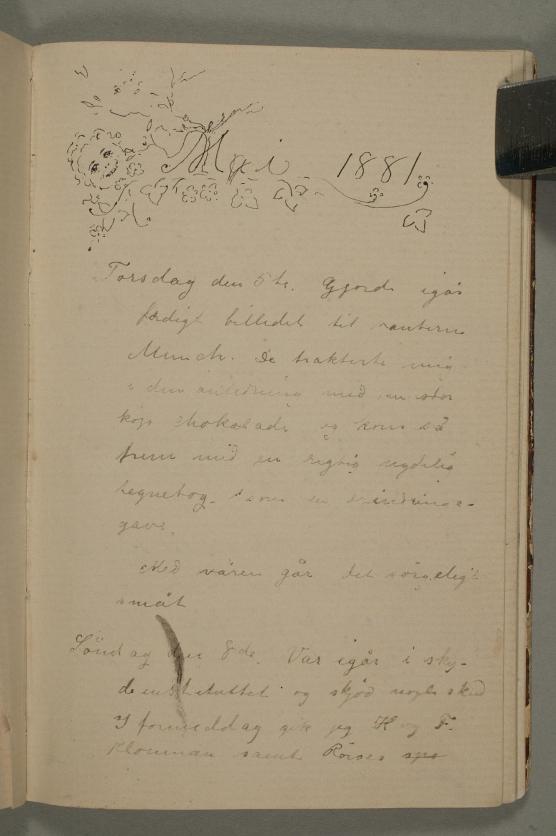 Mai 1881
Torsdag den 5te. Gjorde igår
færdigt billedet til tanterne
Munch. De trakterte mig
i den anledning med en stor
kop chokolade og kom så
frem med en rigtig nydelig
tegnebog som en erindrings-
gave.
Med våren går det sørgeligt
småt
Søndag den 8de. Var igår i sky-
deinstituttet og skjød nogle skud
I formeddag gik jeg H og F.
samt